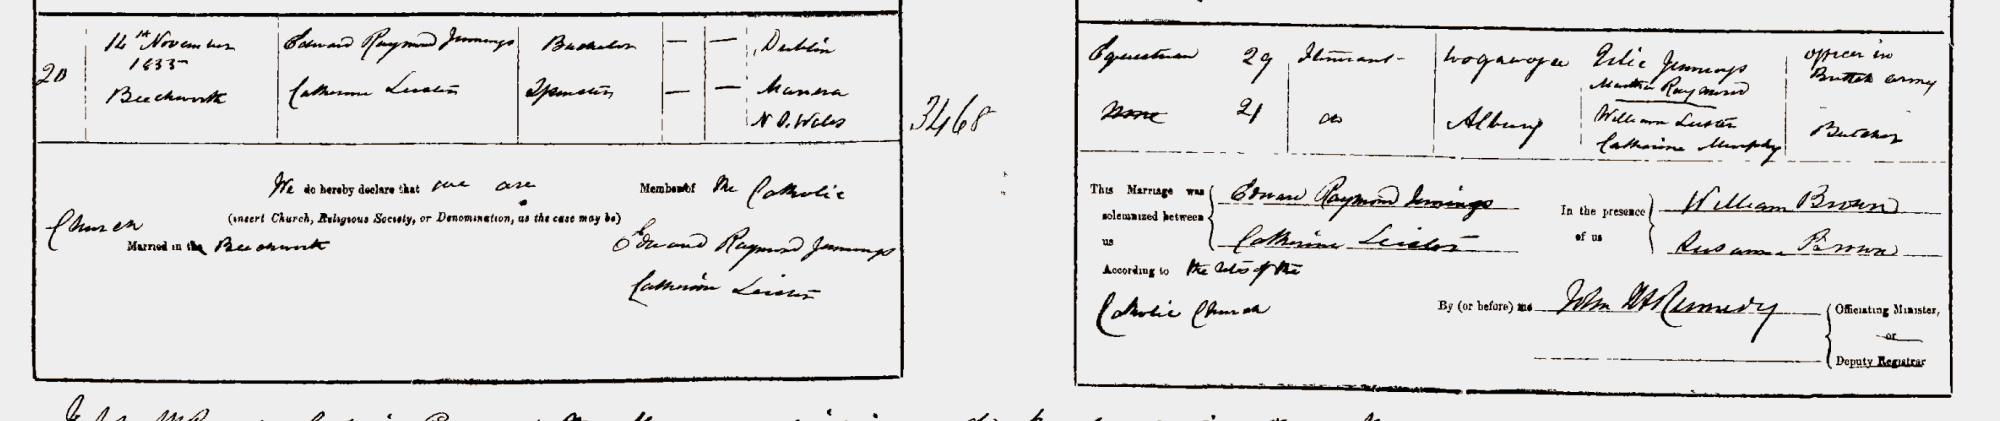 20
14th November 1855 Beechworth
Edward Raymond Jennings Bachelor — — Dublin
Catherine Leiston Spinster — — Maneroo N. S. Wales
We do hereby declare that we are Members of the Catholic
(insert Church, Religious Society, or Denomination, as the case may be)
Church
Married in the Beechworth
Edward Raymond Jennings
Catherine Leiston
3468
Equestrian 29 Itinerant Jennings Officer in
Martha Raymond British army
None 21 do Albury William Leiston Butcher
Catherine Murphy
This Marriage was solemnized between us
Edward Raymond Jennings
Catherine Leiston
In the presence of us
William Brown
Susanna Brown
According to the rites of the
Catholic Church
By (or before) me John Kennedy
Officiating Minister,
or
Deputy Registrar